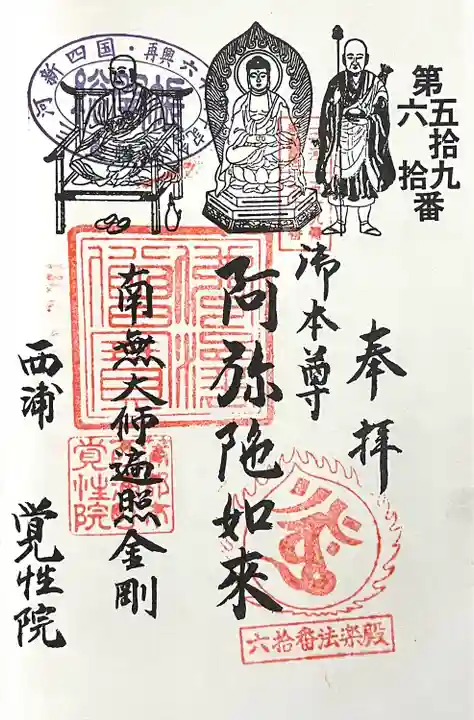 第五拾九番
六拾
奉拝
御本尊
阿弥陀如來
南無大師遍照金剛
西浦 覚性院
覚性院
六拾番法楽殿